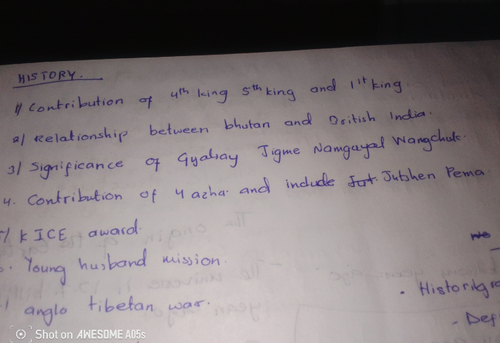 HISTORY.
1/ Contribution of 4th king 5th king and 1st king.
2/ Relationship between bhutan and British India.
3/ Significance of Gyalsay Jigme Namgayal Wangchuk.
4. Contribution of 4 azha and include Jutshen Pema.
/ KICE award.
. Young husband mission.
anglo tibetan war.
. Historigra
- Def
Shot on AWESOME A05s